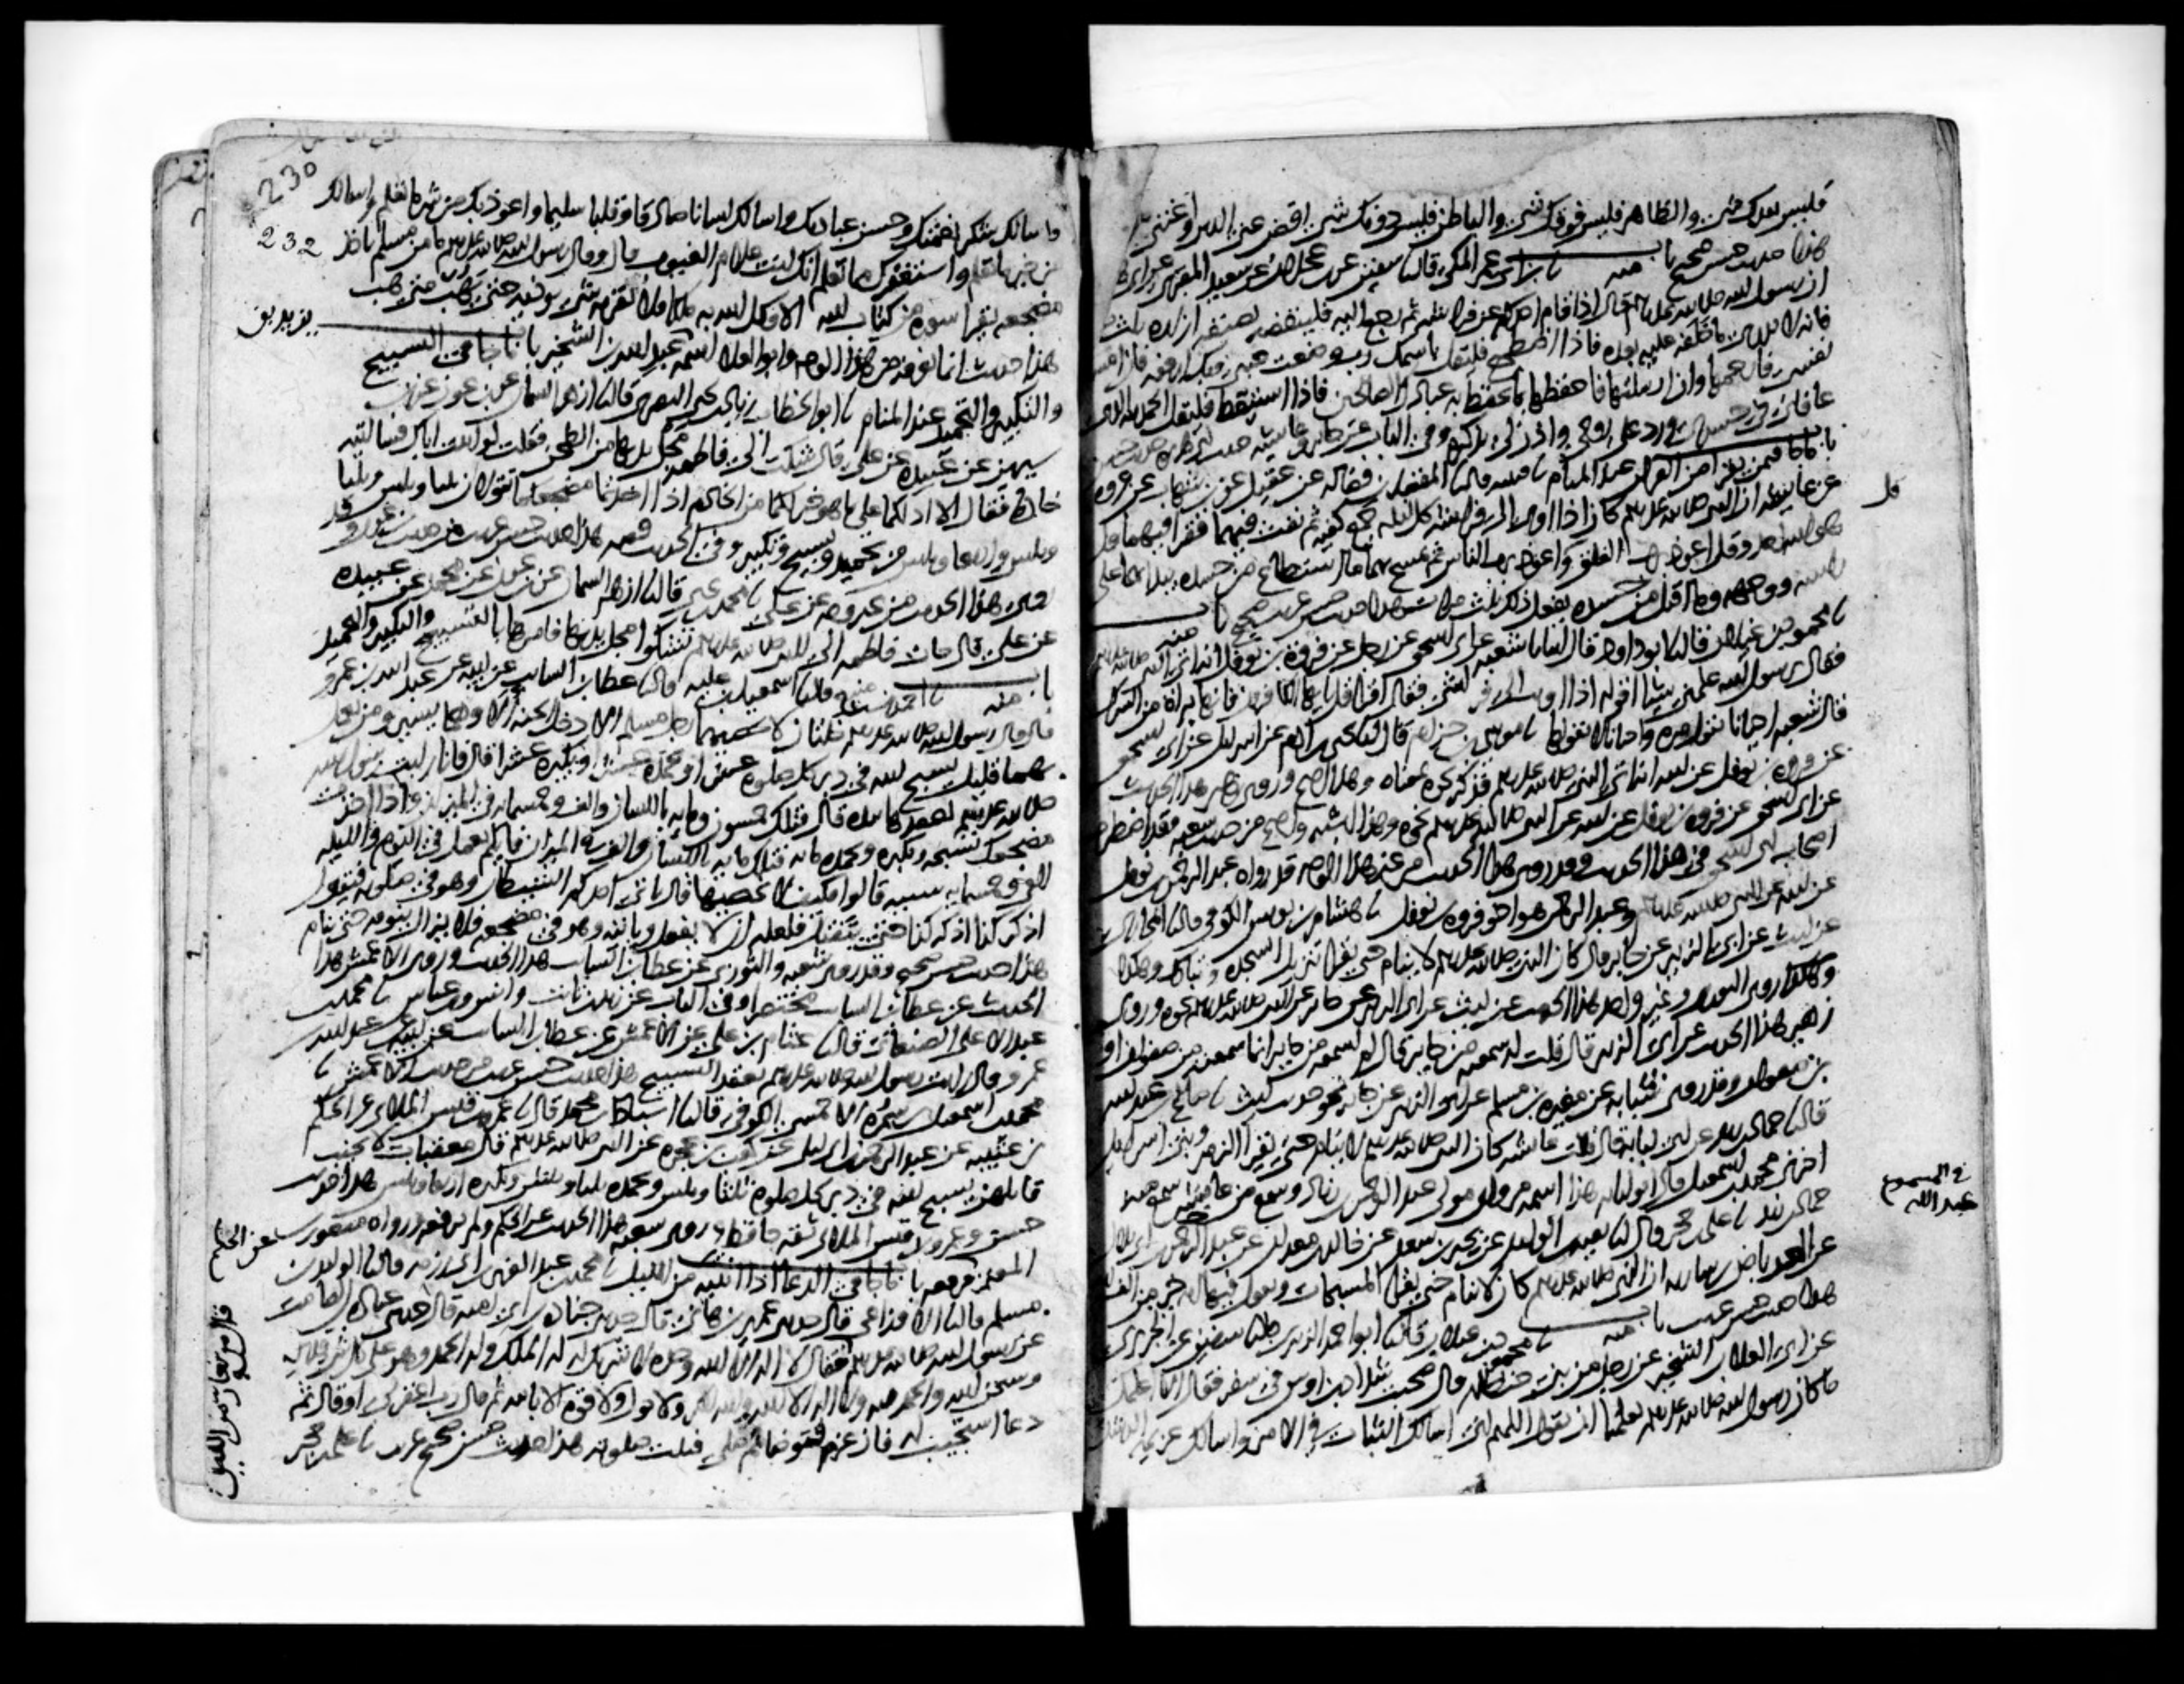 فليس بعدك شيء والظاهر فليس فوقك شيء والباطن فليس دونك شيء اقض عني الدين واغنني
هذا حديث حسن صحيح باب منه نا ابن ابي عمر المكي قال نا سفين عن ابن عجلان عن سعيد المقبري عن ابي
ان رسول الله صلى الله عليه وسلم قال اذا قام احدكم عن فراشه ثم رجع اليه فلينفضه بصنفة ازاره ثلث
فانه لا يدري ما خلفه عليه بعده فاذا اضطجع فليقل باسمك ربي وضعت جنبي وبك ارفعه فان امسكت
نفسي فارحمها وان ارسلتها فاحفظها بما تحفظ به عبادك الصالحين فاذا استيقظ فليقل الحمد لله الذي
عافاني في جسدي ورد علي روحي واذن لي بذكره وفي الباب عن جابر وعائشة حديث ابي هريرة حديث حسن
باب ما جا فيمن يقرا من القران عند المنام نا قتيبة قال نا المفضل بن فضاله عن عقيل عن ابن شهاب عن عروه
عن عايشه ان النبي صلى الله عليه وسلم كان اذا اوى الى فراشه كل ليله جمع كفيه ثم نفث فيهما فقرا فيهما قل
هو الله احد وقل اعوذ برب الفلق وقل اعوذ برب الناس ثم يمسح بهما ما استطاع من جسده يبدا بهما على
راسه ووجهه وما اقبل من جسده يفعل ذلك ثلث مرات هذا حديث حسن غريب صحيح باب منه
نا محمود بن غيلان قال نا ابو داود قال انبانا شعبه عن ابي اسحق عن رجل عن فروة بن نوفل انه اتى النبي صلى الله عليه وسلم
فقال يرسول الله علمني شيئا اقوله اذا اويت الى فراشي فقال اقرا قل يايها الكافرون فانها براة من الشرك
قال شعبه احيانا يقول مرة واحيانا لا يقولها نا موسى بن حزام قال انا يحيى بن ادم عن اسرايل عن ابي اسحق
عن فروة بن نوفل عن ابيه انه اتى النبي صلى الله عليه وسلم فذكر نحوه بمعناه وهذا اصح وروى زهير هذا الحديث
عن ابي اسحق عن فروة بن نوفل عن ابيه عن النبي صلى الله عليه وسلم نحوه وهذا اشبه واصح من حديث شعبه وقد اضطرب
اصحاب ابي اسحق في هذا الحديث وقد روي هذا الحديث من غير هذا الوجه قد رواه عبد الرحمن بن نوفل
عن ابيه عن النبي صلى الله عليه وسلم وعبد الرحمن هو اخو فروه بن نوفل نا هشام بن يونس الكوفي قال نا المحاربي
عن ليث عن ابي الزبير عن جابر قال كان النبي صلى الله عليه وسلم لا ينام حتى يقرا تنزيل السجده وتبارك وهكذا
وهكذا روى الثوري وغير واحد هذا الحديث عن ليث عن ابي الزبير عن جابر عن النبي صلى الله عليه وسلم نحوه وروى
زهير هذا الحديث عن ابي الزبير قال قلت له سمعته من جابر قال لم اسمعه من جابر انما سمعته من صفوان او
بن صفوان وقد روى شبابه عن مغيره بن مسلم عن ابي الزبير عن جابر نحو حديث ليث نا صالح بن عبد الله
قال نا حماد بن زيد عن ابي لبابة قال قالت عائشه كان النبي صلى الله عليه وسلم لا ينام حتى يقرا الزمر وبني اسرايل
اخبرني محمد بن اسمعيل قال ابو لبابه هذا اسمه مروان مولى عبد الرحمن بن زياد وسمع من عايشه سمع منه
حماد بن زيد نا علي بن حجر قال انا بقية بن الوليد عن بحير بن سعد عن خالد بن معدان عن عبد الرحمن بن ابي بلال
عن العرباض بن ساريه ان النبي صلى الله عليه وسلم كان لا ينام حتى يقرا المسبحات ويقول فيها ايه خير من الف ايه
هذا حديث حسن غريب باب منه نا محمود بن غيلان قال نا ابو احمد الزبيري قال نا سفين عن الجريري
عن ابي العلا بن الشخير عن رجل من بني حنظله قال صحبت شداد بن اوس في سفر فقال الا اعلمك
ما كان رسول الله صلى الله عليه وسلم يعلمنا ان نقول اللهم اني اسالك الثبات في الامر واسالك عزيمة الرشد
قل
في المسموع عبد الله
230
232
واسالك شكر نعمتك وحسن عبادتك واسالك لسانا صادقا وقلبا سليما واعوذ بك من شر ما تعلم واسالك
من خير ما تعلم واستغفرك مما تعلم انك انت علام الغيوب قال وقال رسول الله صلى الله عليه وسلم ما من مسلم ياخذ
مضجعه يقرا سورة من كتاب الله الا وكل الله به ملكا فلا يقربه شيء يوذيه حتى يهب متى هب
هذا حديث انما نعرفه من هذا الوجه وابو العلا اسمه يزيد بن عبد الله بن الشخير باب ما جا في التسبيح
والتكبير والتحميد عند المنام نا ابو الخطاب زياد بن يحيى البصري قال نا ازهر السمان عن ابن عون عن ابن
سيرين عن عبيدة عن علي قال شكت الي فاطمة مجل يديها من الطحين فقلت لو اتيت اباك فسالتيه
خادما فقال الا ادلكما على ما هو خير لكما من الخادم اذا اخذتما مضجعكما تقولان ثلثا وثلثين وثلثا
وثلثين واربعا وثلثين من تحميد وتسبيح وتكبير وفي الحديث قصه هذا حديث حسن غريب من حديث ابن عون وقد
روي هذا الحديث من غير وجه عن علي نا محمد بن يحيى قال نا ازهر السمان عن ابن عون عن محمد عن عبيده
عن علي قال جات فاطمه الى النبي صلى الله عليه وسلم تشكوا مجلا بيديها فامرها بالتسبيح والتكبير والتحميد
باب منه نا احمد بن منيع قال نا اسمعيل بن علية قال نا عطا بن السايب عن ابيه عن عبد الله بن عمرو
قال قال رسول الله صلى الله عليه وسلم خلتان لا يحصيهما رجل مسلم الا دخل الجنه الا وهما يسير ومن يعمل
بهما قليل يسبح الله في دبر كل صلوة عشرا ويحمده عشرا ويكبره عشرا قال فانا رايت رسول الله
صلى الله عليه وسلم يعقدها بيده قال فتلك خمسون ومايه باللسان والف وخمسمايه في الميزان واذا اخذت
مضجعك تسبحه وتكبره وتحمده مايه فتلك مايه باللسان والف في الميزان فايكم يعمل في اليوم والليله
الفي وخمسمايه سيئه قالوا فكيف لا نحصيها قال ياتي احدكم الشيطان وهو في صلوته فيقول
اذكر كذا اذكر كذا حتى ينفتل فلعله ان لا يفعل وياتيه وهو في مضجعه فلا يزال ينومه حتى ينام
هذا حديث حسن صحيح وقد روى شعبه والثوري عن عطا بن السايب هذا الحديث وروى الاعمش هذا
الحديث عن عطا بن السايب مختصرا وفي الباب عن زيد بن ثابت وانس وابن عباس نا محمد بن
عبد الاعلى الصنعاني قال نا عثام بن علي عن الاعمش عن عطا بن السايب عن ابيه عن عبد الله بن
عمرو قال رايت رسول الله صلى الله عليه وسلم يعقد التسبيح هذا حديث حسن غريب من حديث الاعمش نا
محمد بن اسمعيل بن سمرة الاحمسي الكوفي قال نا اسباط بن محمد قال نا عمرو بن قيس الملائي عن الحكم
بن عتيبه عن عبد الرحمن بن ابي ليلى عن كعب بن عجرة عن النبي صلى الله عليه وسلم قال معقبات لا يخيب
قايلهن يسبح الله في دبر كل صلوة ثلثا وثلثين ويحمده ثلثا وثلثين ويكبره اربعا وثلثين هذا حديث
حسن وعمرو بن قيس الملائي ثقه حافظ وروى شعبه هذا الحديث عن الحكم ولم يرفعه ورواه منصور
بن المعتمر فرفعه باب ما جا في الدعا اذا انتبه من الليل نا محمد بن عبد العزيز بن ابي رزمه قال نا الوليد بن
مسلم قال نا الاوزاعي قال حدثني عمير بن هاني قال حدثني جناده بن ابي اميه قال حدثني عباده بن الصامت
عن رسول الله صلى الله عليه وسلم فقال لا اله الا الله وحده لا شريك له له الملك وله الحمد وهو على كل شيء قدير
وسبحن الله والحمد لله ولا اله الا الله والله اكبر ولا حول ولا قوة الا بالله ثم قال رب اغفر لي او قال ثم
دعا استجيب له فان عزم فتوضا ثم صلى قبلت صلوته هذا حديث حسن صحيح غريب نا علي بن حجر
عن الحكم
قال من تعار من الليل